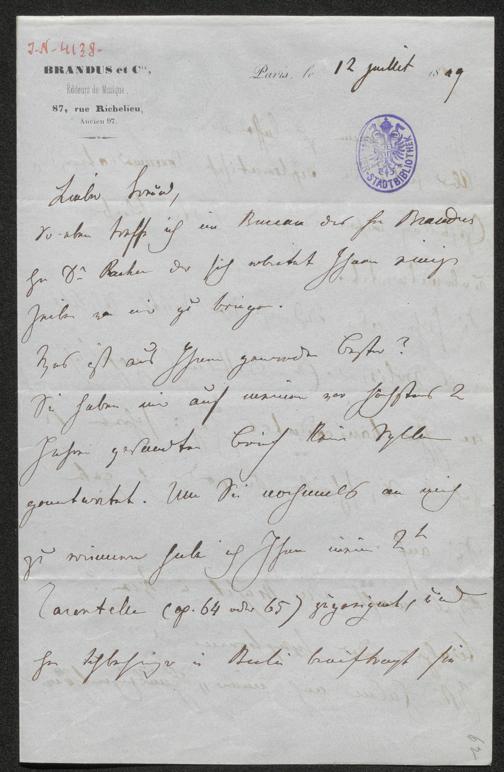 I.N. 4138.
BRANDUS et Cie,
Éditeurs de Musique,
87, rue Richelieu,
Ancien 97.
Paris, le 12 juillet 1859
STADTBIBLIOTHEK
Lieber Freund,
So eben treffe ich im Bureau des Hr Brandus
Hr Dr Bacher der sich erbietet Ihnen einige
Zeilen von mir zu bringen.
Was ist aus Ihnen geworden bester?
Sie haben mir auf meinen vor höchstens 2
Jahren gesandten Brief keine Sylbe
geantwortet. Um Sie nochmals an mich
zu erinnern habe ich Ihnen meine 2te
Tarentelle (op. 64 oder 65) zugeeignet, und
Hr Schlesinger in Berlin beauftragt sie